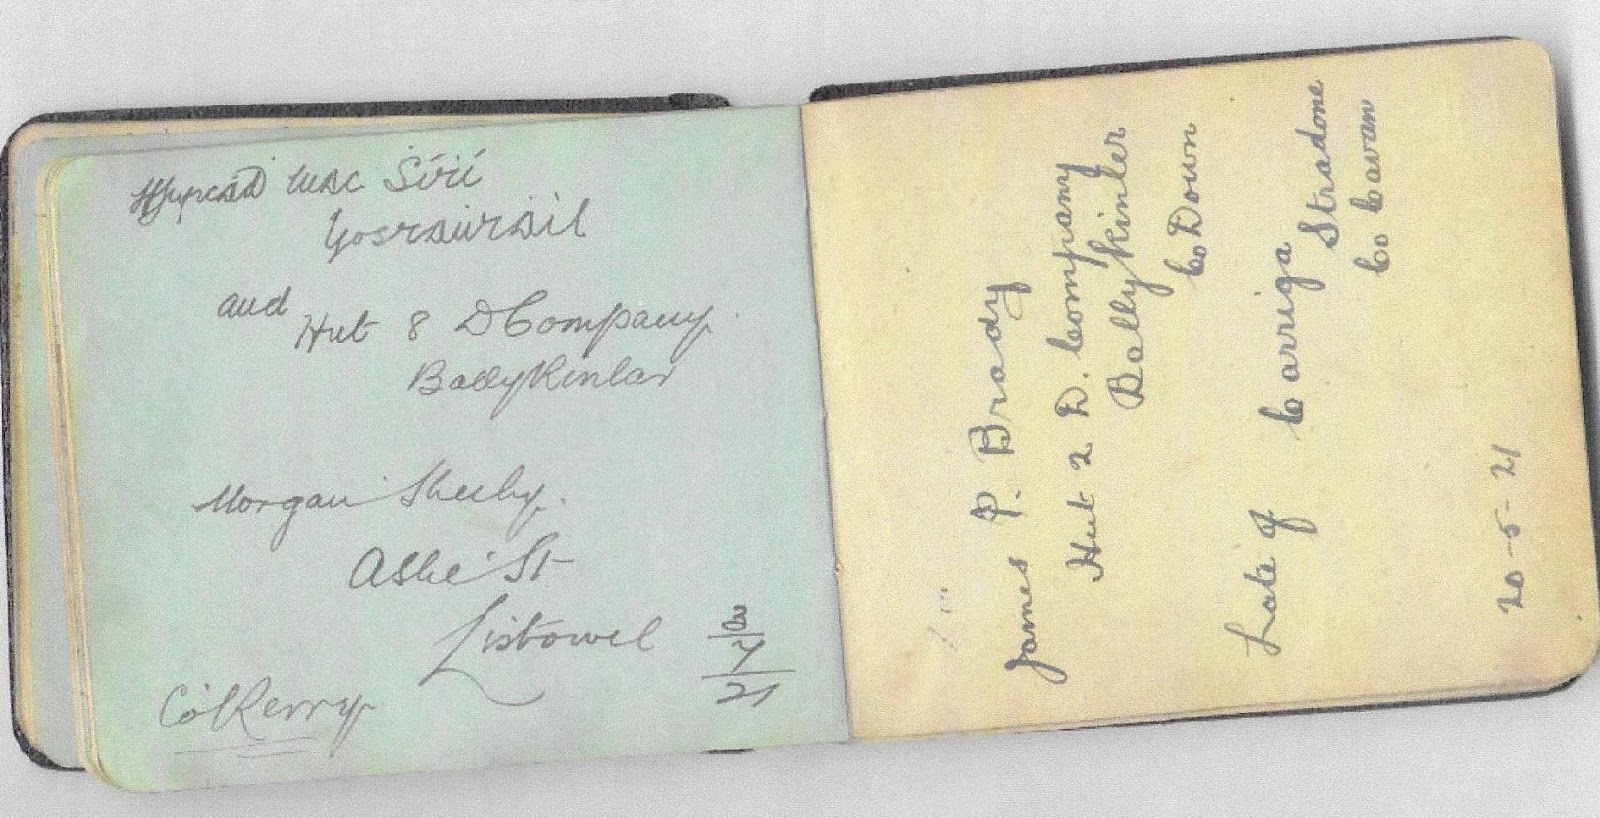 mac Síṫiġ
and
Hut 8 D Company
BallyKinlar
Morgan Sheehy.
Ashe St
Listowel
3/7/21
Co Kerry
James P. Brady
Hut 2 D. Company
Ballykinler
Co Down
Late of Carriga
Stradone
Co Cavan
20-5-21